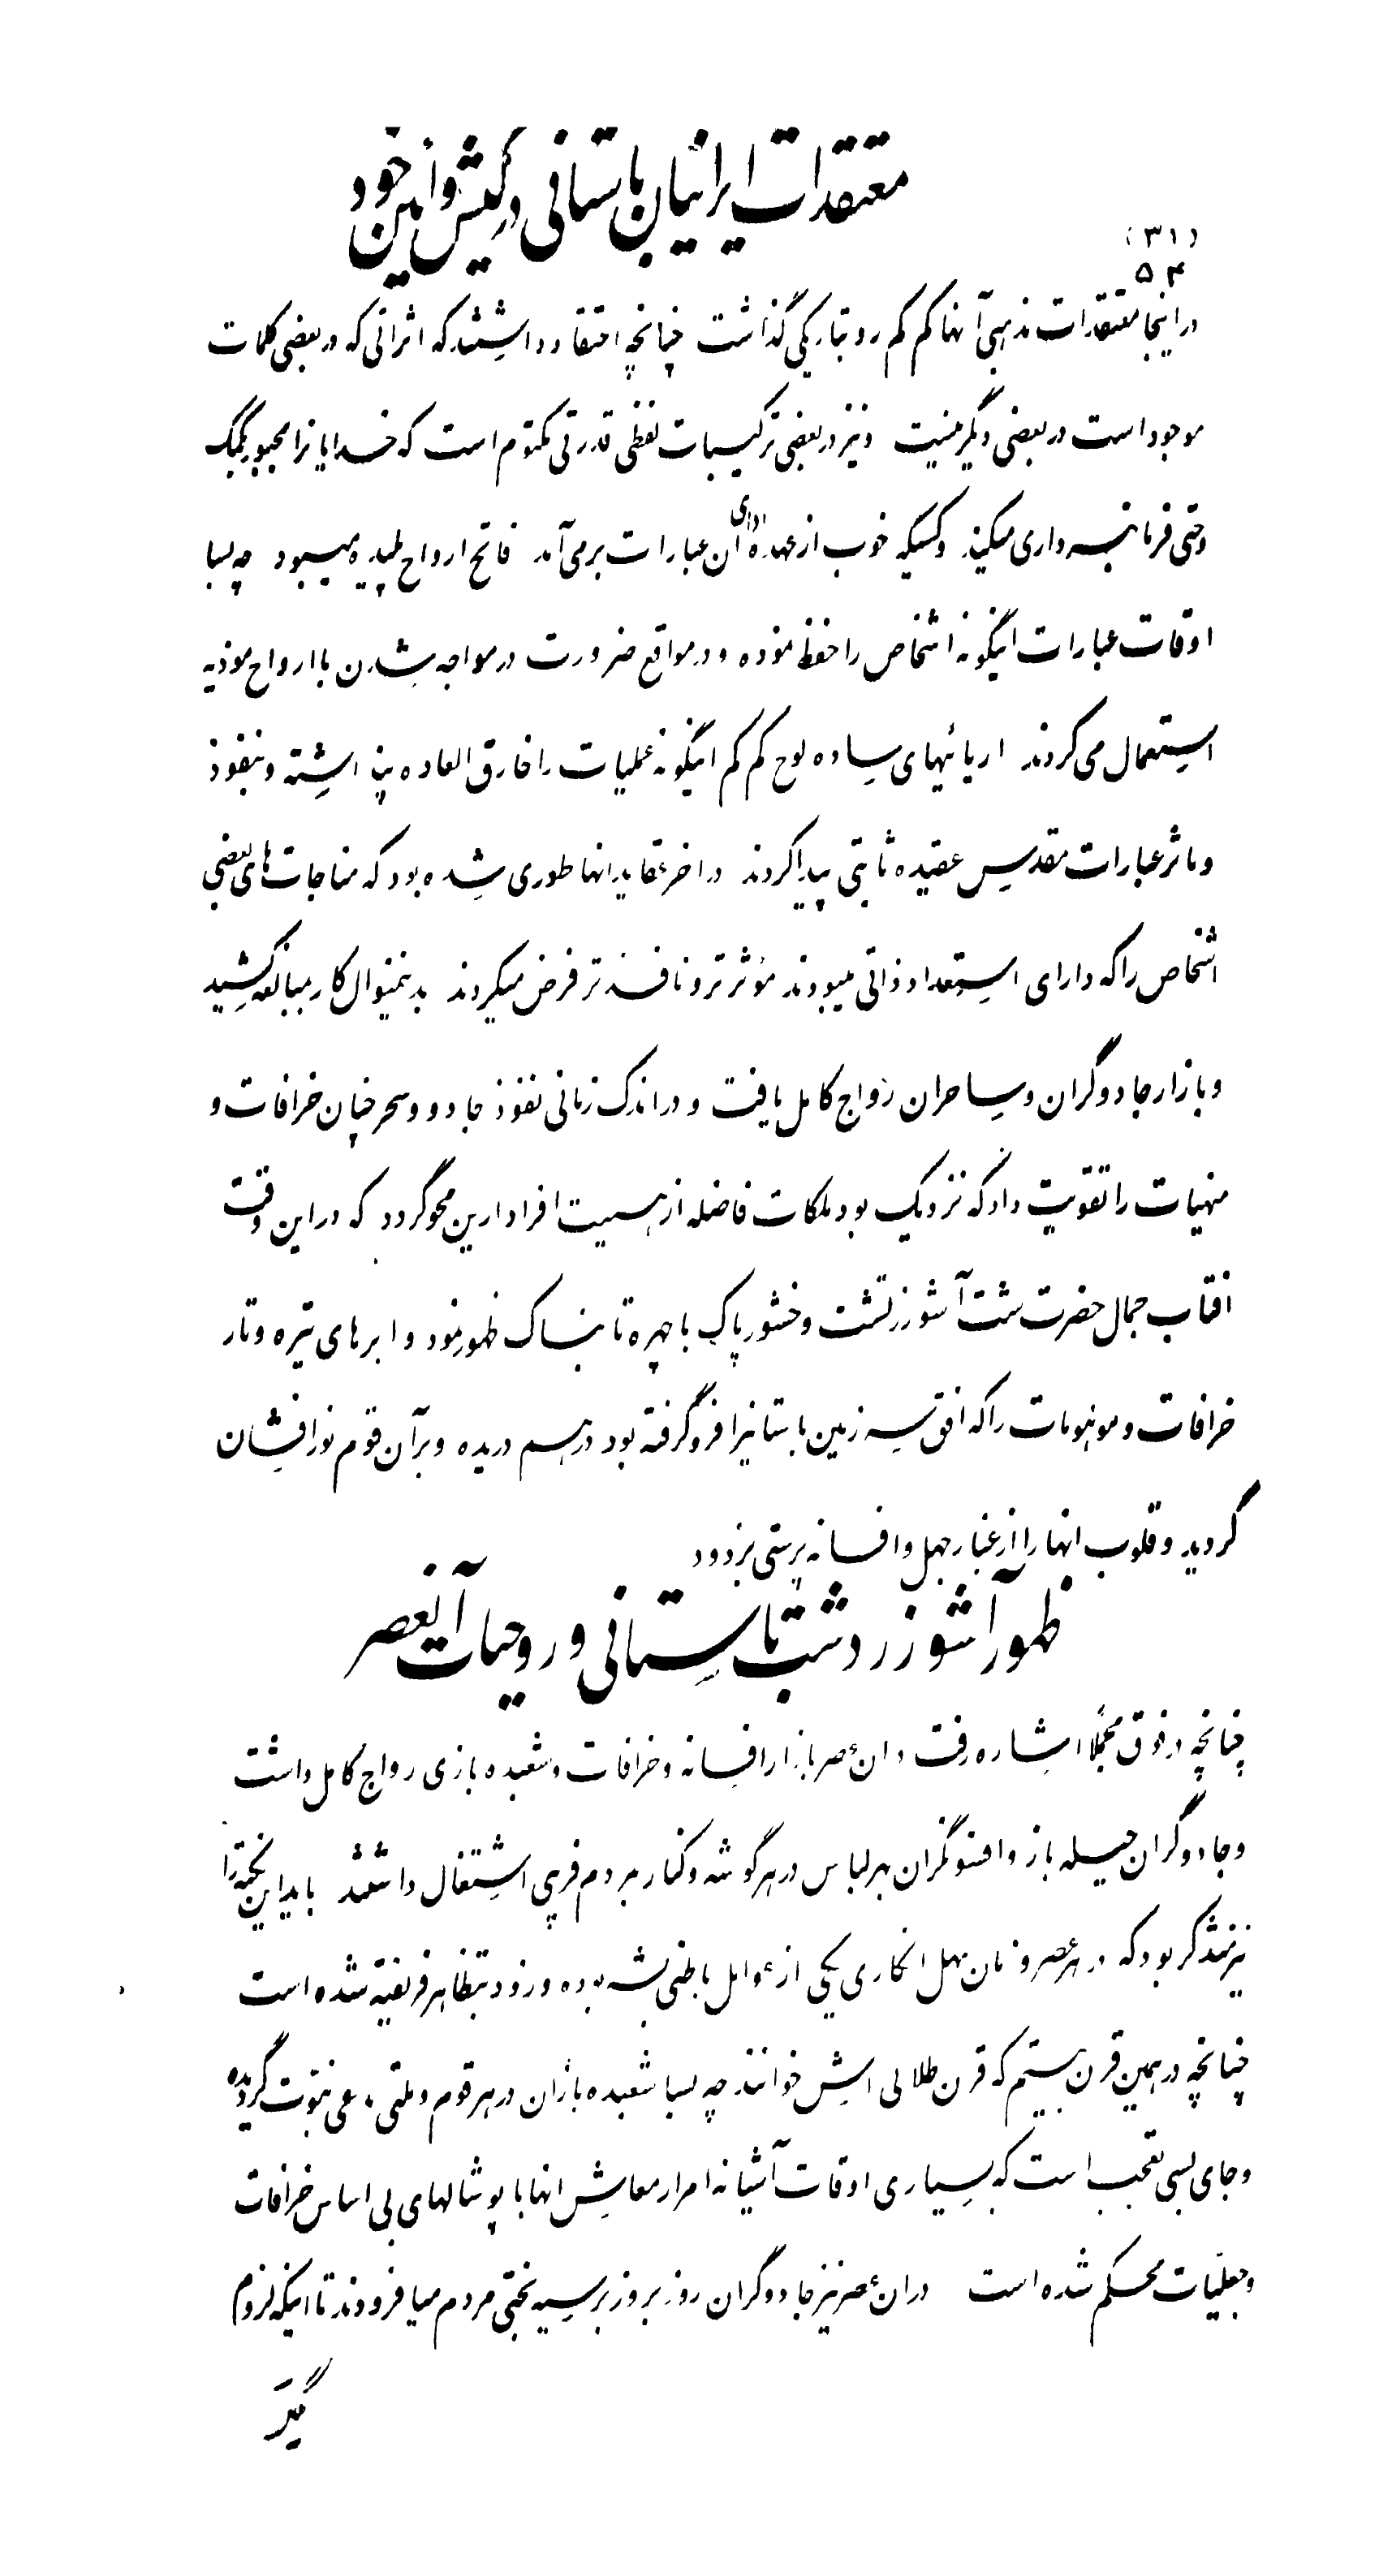 معتقدات ایرانیان باستانی در کیش و آیین خود
(۳۱)
۵۴
در اینجا معتقدات مذهبی آنها کم کم رو بتاریکی گذاشت چنانچه اعتقاد داشتند که اثراتی که در بعضی کلمات
موجود است در بعضی دیگر نیست و نیز در بعضی ترکیبات لفظی قدرتی مکتوم است که خدایانرا مجبور بکمک
وحتی فرمانبرداری میکند وکسیکه خوب از عهده ادای آن عبارات برمی آمد فاتح ارواح پلیده میبود چه بسا
اوقات عبارات اینگونه اشخاص را حفظ نموده و در مواقع ضرورت در مواجه شدن با ارواح موذیه
استعمال می کردند اریائیهای ساده لوح کم کم اینگونه عملیات را خارق العاده پنداشته و بنفوذ
و ماثر عبارات مقدس عقیده ثابتی پیدا کردند در اخر عقاید انها طوری شده بود که مناجات های بعضی
اشخاص را که دارای استعداد ذاتی میبودند مؤثرتر و نافذتر فرض میکردند بدینمنوال کار بمبالغه کشید
و بازار جادوگران و ساحران رواج کامل یافت و در اندک زمانی نفوذ جادو و سحر چنان خرافات و
منهیات را تقویت داد که نزدیک بود ملکات فاضله از هییت افراد ارین محو گردد که در این وقت
افتاب جمال حضرت شت آشو زرتشت وخشور پاک با چهره تابناک ظهور نمود و ابرهای تیره و تار
خرافات و موهومات را که افق سرزمین باستانیرا فرو گرفته بود درهم دریده و بر آن قوم نورافشان
گردید و قلوب انها را از غبار جهل و افسانه پرستی بزدود
ظهور آشو زردشت باستانی و روحیات آنعصر
چنانچه در فوق مجملاً اشاره رفت در ان عصر بازار افسانه و خرافات و شعبده بازی رواج کامل داشت
و جادوگران حیله باز و افسونگران بهر لباس در هر گوشه و کنار بمردم فریبی اشتغال داشتند باید این نکته را
نیز متذکر بود که در هر عصر و زمان سهل انکاری یکی از عوامل باطنی بشر بوده و زود بتظاهر فریفته شده است
چنانچه در همین قرن بیستم که قرن طلائی اش خوانند چه بسا شعبده بازان در هر قوم و ملتی مدعی نبوّت گردیده
و جای بسی تعجب است که بسیاری اوقات آشیانه امرار معاش انها با پوشالهای بی اساس خرافات
و جعلیّات محکم شده است در ان عصر نیز جادوگران روز بروز بر سیه بختی مردم میافزودند تا اینکه لزوم